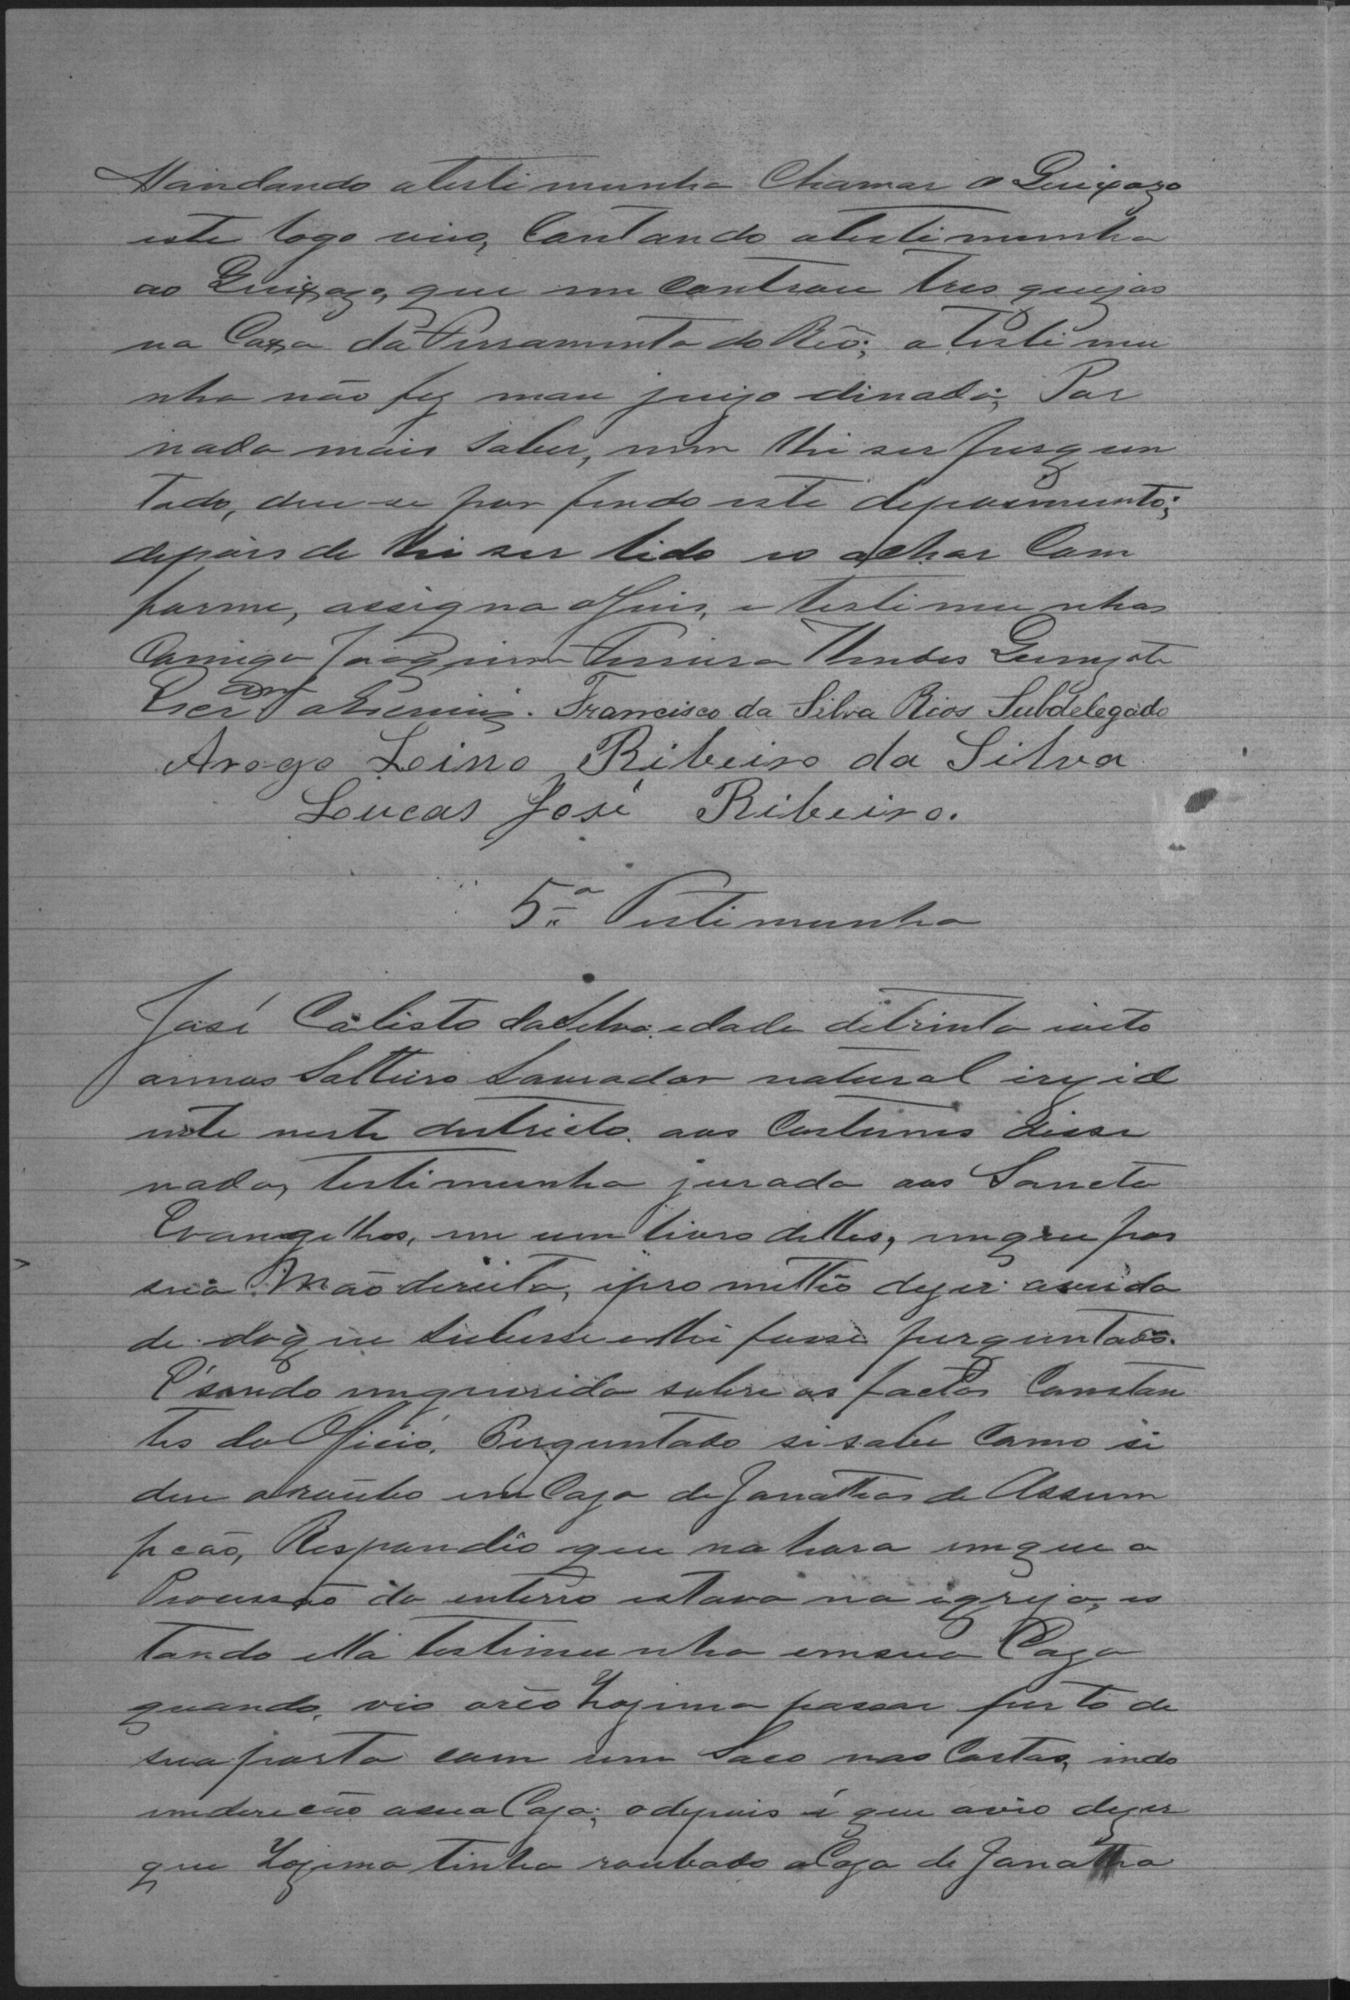 Mandando atestimunha Chamar o Queixozo
este logo veio, Contando atestimunha
ao Queixozo, que em controu tres queijos
na Caxa da Ferramenta do Réo; a testimu
nha não fez mau juizo dinada; Por
nada mais saber, nem lhi ser pergun
tado, deu-se por findo este depoimento;
depois de lhi ser lido eo achar Com
forme, assigna oJuis, e testimunhas
Comigo Joaquim Ferreira Mendes
Escram oEscrevi. Francisco da Silva Rios Subdelegado
Arogo Leino Ribeiro da Silva
Lucas José Ribeiro.
5.ª Testimunha
José Calisto daSilva, edade detrinta ioito
annos Saltteiro Lavrador natural irezid
ente neste destricto. aos Costumes disse
nada, testimunha jurada aos Sancto
Evangelhos, em um livro delles, emque pos
sua Mão dereita, ipromettêo dezer averda
de doque Subesse elhi fosse perguntado.
E'sendo inquerida sobre os factos Constan
tes do Oficio. Perguntado si sabe Como si
deu oroubo em Caza de Janathas de Assum
pcão, Respondêo que na hora emque a
Procissão do enterro estava na igreja, es
tando ella testimunha emsua Caza
quando, vio oréo Zozimo passar perto de
suaporta com um Saco nas Costas, indo
emderecão asua Caza; edepois é que ovio dezer
que Zozimo tinha roubado aCaza de Janatha